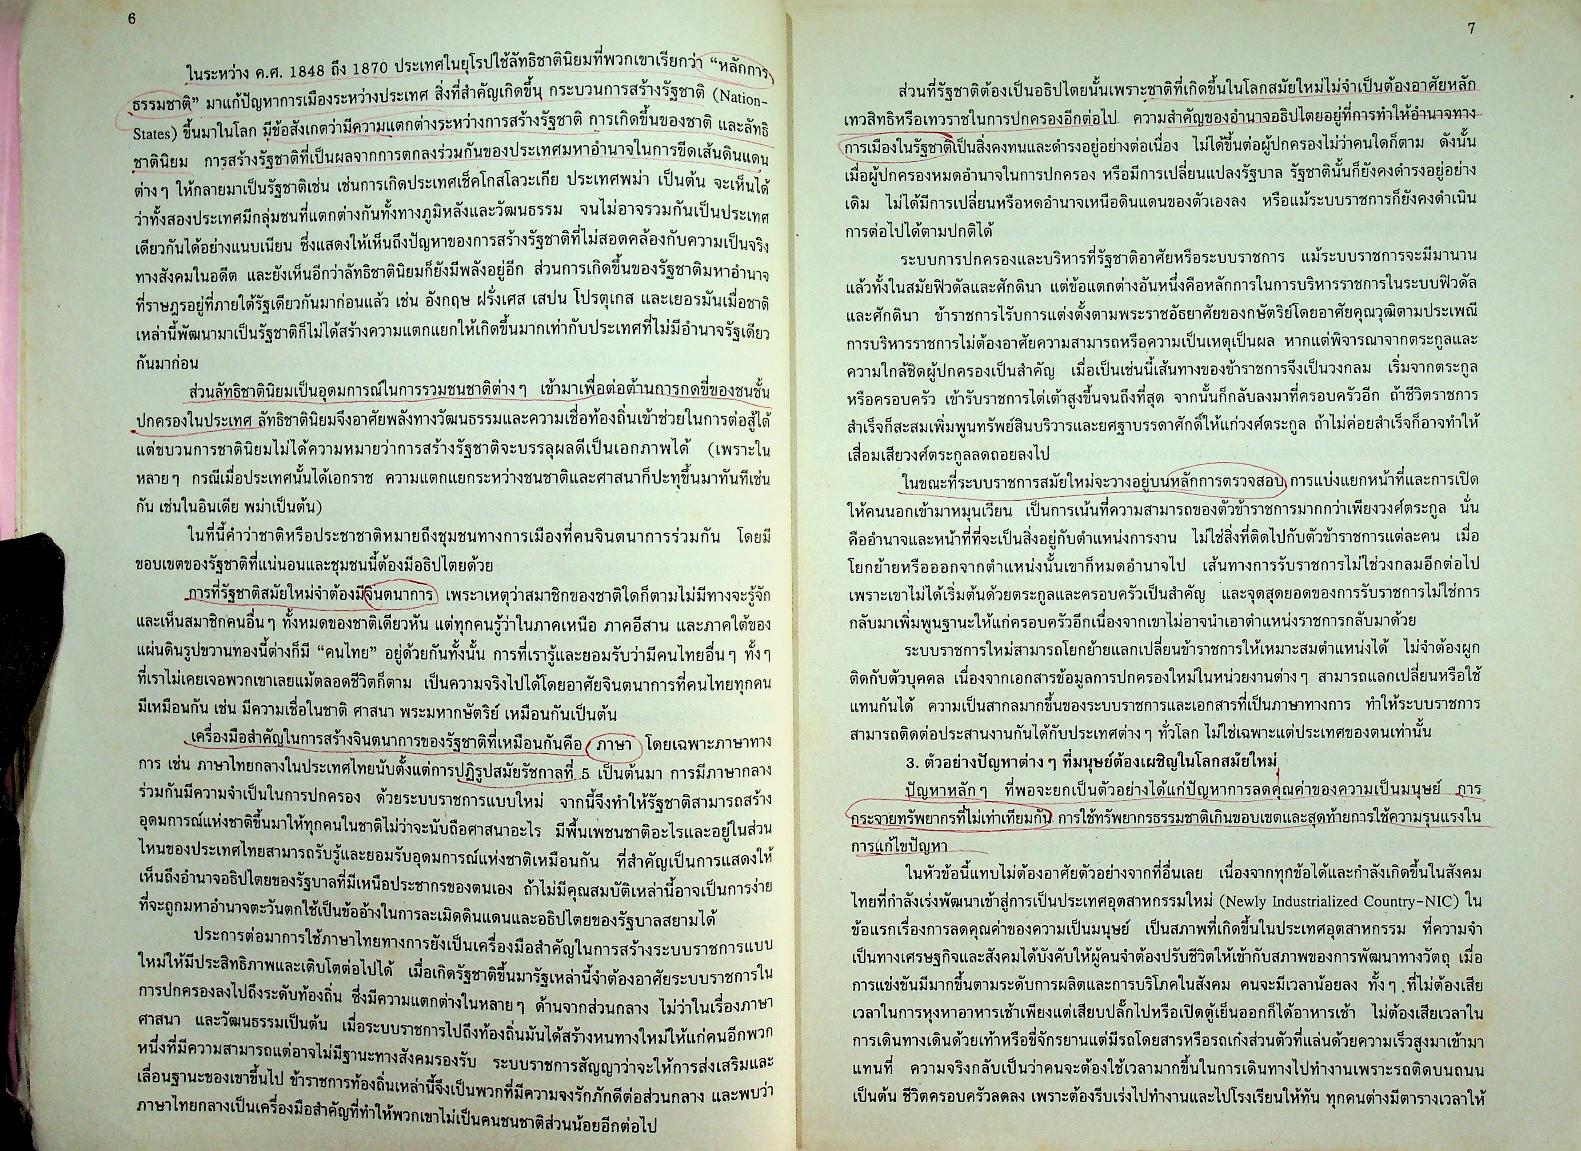 6
ในระหว่าง ค.ศ. 1848 ถึง 1870 ประเทศในยุโรปใช้ลัทธิชาตินิยมที่พวกเขาเรียกว่า “หลักการ
ธรรมชาติ” มาแก้ปัญหาการเมืองระหว่างประเทศ สิ่งที่สำคัญเกิดขึ้น กระบวนการสร้างรัฐชาติ (Nation-
States) ขึ้นมาในโลก มีข้อสังเกตว่ามีความแตกต่างระหว่างการสร้างรัฐชาติ การเกิดขึ้นของชาติ และลัทธิ
ชาตินิยม การสร้างรัฐชาติที่เป็นผลจากการตกลงร่วมกันของประเทศมหาอำนาจในการขีดเส้นดินแดน
ต่างๆ ให้กลายมาเป็นรัฐชาติเช่น เช่นการเกิดประเทศเช็คโกสโลวะเกีย ประเทศพม่า เป็นต้น จะเห็นได้
ว่าทั้งสองประเทศมีกลุ่มชนที่แตกต่างกันทั้งทางภูมิหลังและวัฒนธรรม จนไม่อาจรวมกันเป็นประเทศ
เดียวกันได้อย่างแนบเนียน ซึ่งแสดงให้เห็นถึงปัญหาของการสร้างรัฐชาติที่ไม่สอดคล้องกับความเป็นจริง
ทางสังคมในอดีต และยังเห็นอีกว่าลัทธิชาตินิยมก็ยังมีพลังอยู่อีก ส่วนการเกิดขึ้นของรัฐชาติมหาอำนาจ
ที่ราษฎรอยู่ที่ภายใต้รัฐเดียวกันมาก่อนแล้ว เช่น อังกฤษ ฝรั่งเศส เสปน โปรตุเกส และเยอรมันเมื่อชาติ
เหล่านี้พัฒนามาเป็นรัฐชาติก็ไม่ได้สร้างความแตกแยกให้เกิดขึ้นมากเท่ากับประเทศที่ไม่มีอำนาจรัฐเดียว
กันมาก่อน
ส่วนลัทธิชาตินิยมเป็นอุดมการณ์ในการรวมชนชาติต่างๆ เข้ามาเพื่อต่อต้านการกดขี่ของชนชั้น
ปกครองในประเทศ ลัทธิชาตินิยมจึงอาศัยพลังทางวัฒนธรรมและความเชื่อท้องถิ่นเข้าช่วยในการต่อสู้ได้
แต่ขบวนการชาตินิยมไม่ได้ความหมายว่าการสร้างรัฐชาติจะบรรลุผลดีเป็นเอกภาพได้ (เพราะใน
หลายๆ กรณีเมื่อประเทศนั้นได้เอกราช ความแตกแยกระหว่างชนชาติและศาสนาก็ปะทุขึ้นมาทันทีเช่น
กัน เช่นในอินเดีย พม่าเป็นต้น)
ในที่นี้คำว่าชาติหรือประชาชาติหมายถึงชุมชนทางการเมืองที่คนจินตนาการร่วมกัน โดยมี
ขอบเขตของรัฐชาติที่แน่นอนและชุมชนนี้ต้องมีอธิปไตยด้วย
การที่รัฐชาติสมัยใหม่จำต้องมีจินตนาการ เพระาเหตุว่าสมาชิกของชาติใดก็ตามไม่มีทางจะรู้จัก
และเห็นสมาชิกคนอื่นๆ ทั้งหมดของชาติเดียวหัน แต่ทุกคนรู้ว่าในภาคเหนือ ภาคอีสาน และภาคใต้ของ
แผ่นดินรูปขวานทองนี้ต่างก็มี “คนไทย” อยู่ด้วยกันทั้งนั้น การที่เรารู้และยอมรับว่ามีคนไทยอื่นๆ ทั้งๆ
ที่เราไม่เคยเจอพวกเขาเลยแม้ตลอดชีวิตก็ตาม เป็นความจริงไปได้โดยอาศัยจินตนาการที่คนไทยทุกคน
มีเหมือนกัน เช่น มีความเชื่อในชาติ ศาสนา พระมหากษัตริย์ เหมือนกันเป็นต้น
เครื่องมือสำคัญในการสร้างจินตนาการของรัฐชาติที่เหมือนกันคือ ภาษา โดยเฉพาะภาษาทาง
การ เช่น ภาษาไทยกลางในประเทศไทยนับตั้งแต่การปฏิรูปสมัยรัชกาลที่ 5 เป็นต้นมา การมีภาษากลาง
ร่วมกันมีความจำเป็นในการปกครอง ด้วยระบบราชการแบบใหม่ จากนี้จึงทำให้รัฐชาติสามารถสร้าง
อุดมการณ์แห่งชาติขึ้นมาให้ทุกคนในชาติไม่ว่าจะนับถือศาสนาอะไร มีพื้นเพชนชาติอะไรและอยู่ในส่วน
ไหนของประเทศไทยสามารถรับรู้และยอมรับอุดมการณ์แห่งชาติเหมือนกัน ที่สำคัญเป็นการแสดงให้
เห็นถึงอำนาจอธิปไตยของรัฐบาลที่มีเหนือประชากรของตนเอง ถ้าไม่มีคุณสมบัติเหล่านี้อาจเป็นการง่าย
ที่จะถูกมหาอำนาจตะวันตกใช้เป็นข้ออ้างในการละเมิดดินแดนและอธิปไตยของรัฐบาลสยามได้
ประการต่อมาการใช้ภาษาไทยทางการยังเป็นเครื่องมือสำคัญในการสร้างระบบราชการแบบ
ใหม่ให้มีประสิทธิภาพและเติบโตต่อไปได้ เมื่อเกิดรัฐชาติขึ้นมารัฐเหล่านี้จำต้องอาศัยระบบราชการใน
การปกครองลงไปถึงระดับท้องถิ่น ซึ่งมีความแตกต่างในหลายๆ ด้านจากส่วนกลาง ไม่ว่าในเรื่องภาษา
ศาสนา และวัฒนธรรมเป็นต้น เมื่อระบบราชการไปถึงท้องถิ่นมันได้สร้างหนทางใหม่ให้แก่คนอีกพวก
หนึ่งที่มีความสามารถแต่อาจไม่มีฐานะทางสังคมรองรับ ระบบราชการสัญญาว่าจะให้การส่งเสริมและ
เลื่อนฐานะของเขาขึ้นไป ข้าราชการท้องถิ่นเหล่านี้จึงเป็นพวกที่มีความจงรักภักดีต่อส่วนกลาง และพบว่า
ภาษาไทยกลางเป็นเครื่องมือสำคัญที่ทำให้พวกเขาไม่เป็นคนชนชาติส่วนน้อยอีกต่อไป
7
ส่วนที่รัฐชาติต้องเป็นอธิปไตยนั้นเพราะชาติที่เกิดขึ้นในโลกสมัยใหม่ไม่จำเป็นต้องอาศัยหลัก
เทวสิทธิหรือเทวราชในการปกครองอีกต่อไป ความสำคัญของอำนาจอธิปไตยอยู่ที่การทำให้อำนาจทาง
การเมืองในรัฐชาติเป็นสิ่งคงทนและดำรงอยู่อย่างต่อเนื่อง ไม่ได้ขึ้นต่อผู้ปกครองไม่ว่าคนใดก็ตาม ดังนั้น
เมื่อผู้ปกครองหมดอำนาจในการปกครอง หรือมีการเปลี่ยนแปลงรัฐบาล รัฐชาตินั้นก็ยังคงดำรงอยู่อย่าง
เดิม ไม่ได้มีการเปลี่ยนหรือหดอำนาจเหนือดินแดนของตัวเองลง หรือแม้ระบบราชการก็ยังคงดำเนิน
การต่อไปได้ตามปกติได้
ระบบการปกครองและบริหารที่รัฐชาติอาศัยหรือระบบราชการ แม้ระบบราชการจะมีมานาน
แล้วทั้งในสมัยฟิวดัลและศักดินา แต่ข้อแตกต่างอันหนึ่งคือหลักการในการบริหารราชการในระบบฟิวดัล
และศักดินา ข้าราชการไร้รับการแต่งตั้งตามพระราชอัธยาศัยของกษัตริย์โดยอาศัยคุณวุฒิตามประเพณี
การบริหารราชการไม่ต้องอาศัยความสามารถหรือความเป็นเหตุเป็นผล หากแต่พิจารณาจากตระกูลและ
ความใกล้ชิดผู้ปกครองเป็นสำคัญ เมื่อเป็นเช่นนี้เส้นทางของข้าราชการจึงเป็นวงกลม เริ่มจากตระกูล
หรือครอบครัว เข้ารับราชการไต่เต้าสูงขึ้นจนถึงที่สุด จากนั้นก็กลับลงมาที่ครอบครัวอีก ถ้าชีวิตราชการ
สำเร็จก็สะสมเพิ่มพูนทรัพย์สินบริวารและยศฐาบรรดาศักดิ์ให้แก่วงศ์ตระกูล ถ้าไม่ค่อยสำเร็จก็อาจทำให้
เสื่อมเสียวงศ์ตระกูลลดถอยลงไป
ในขณะที่ระบบราชการสมัยใหม่จะวางอยู่บนหลักการตรวจสอบ การแบ่งแยกหน้าที่และการเปิด
ให้คนนอกเข้ามาหมุนเวียน เป็นการเน้นที่ความสามารถของตัวข้าราชการมากกว่าเพียงวงศ์ตระกูล นั่น
คืออำนาจและหน้าที่ที่จะเป็นสิ่งอยู่กับตำแหน่งการงาน ไม่ใช่สิ่งที่ติดไปกับตัวข้าราชการแต่ละคน เมื่อ
โยกย้ายหรือออกจากตำแหน่งนั้นเขาก็หมดอำนาจไป เส้นทางการรับราชการไม่ใช่วงกลมอีกต่อไป
เพราะเขาไม่ได้เริ่มต้นด้วยตระกูลและครอบครัวเป็นสำคัญ และจุดสุดยอดของการรับราชการไม่ใช่การ
กลับมาเพิ่มพูนฐานะให้แก่ครอบครัวอีกเนื่องจากเขาไม่อาจนำเอาตำแหน่งราชการกลับมาด้วย
ระบบราชการใหม่สามารถโยกย้ายแลกเปลี่ยนข้าราชการให้เหมาะสมตำแหน่งได้ ไม่จำต้องผูก
ติดกับตัวบุคคล เนื่องจากเอกสารข้อมูลการปกครองใหม่ในหน่วยงานต่างๆ สามารถแลกเปลี่ยนหรือใช้
แทนกันได้ ความเป็นสากลมากขึ้นของระบบราชการและเอกสารที่เป็นภาษาทางการ ทำให้ระบบราชการ
สามารถติดต่อประสานงานกันได้กับประเทศต่างๆ ทั่วโลก ไม่ใช่เฉพาะแต่ประเทศของตนเท่านั้น
3. ตัวอย่างปัญหาต่างๆ ที่มนุษย์ต้องเผชิญในโลกสมัยใหม่
ปัญหาหลักๆ ที่พอจะยกเป็นตัวอย่างได้แก่ปัญหาการลดคุณค่าของความเป็นมนุษย์ การ
กระจายทรัพยากรที่ไม่เท่าเทียมกัน การใช้ทรัพยากรธรรมชาติเกินขอบเขตและสุดท้ายการใช้ความรุนแรงใน
การแก้ไขปัญหา
ในหัวข้อนี้แทบไม่ต้องอาศัยตัวอย่างจากที่อื่นเลย เนื่องจากทุกข้อได้และกำลังเกิดขึ้นในสังคม
ไทยที่กำลังเร่งพัฒนาเข้าสู่การเป็นประเทศอุตสาหกรรมใหม่ (Newly Industrialized Country-NIC) ใน
ข้อแรกเรื่องการลดคุณค่าของความเป็นมนุษย์ เป็นสภาพที่เกิดขึ้นในประเทศอุตสาหกรรม ที่ความจำ
เป็นทางเศรษฐกิจและสังคมได้บังคับให้ผู้คนจำต้องปรับชีวิตให้เข้ากับสภาพของการพัฒนาทางวัตถุ เมื่อ
การแข่งขันมีมากขึ้นตามระดับการผลิตและการบริโภคในสังคม คนจะมีเวลาน้อยลง ทั้งๆ ที่ไม่ต้องเสีย
เวลาในการหุงหาอาหารเช้าเพียงแต่เสียบปลั๊กไปหรือเปิดตู้เย็นออกก็ได้อาหารเช้า ไม่ต้องเสียเวลาใน
การเดินทางเดินด้วยเท้าหรือขี่จักรยานแต่มีรถโดยสารหรือรถเก๋งส่วนตัวที่แล่นด้วยความเร็วสูงมาเข้ามา
แทนที่ ความจริงกลับเป็นว่าคนจะต้องใช้เวลามากขึ้นในการเดินทางไปทำงานเพราะรถติดบนถนน
เป็นต้น ชีวิตครอบครัวลดลง เพราะต้องรีบเร่งไปทำงานและไปโรงเรียนให้ทัน ทุกคนต่างมีตารางเวลาให้